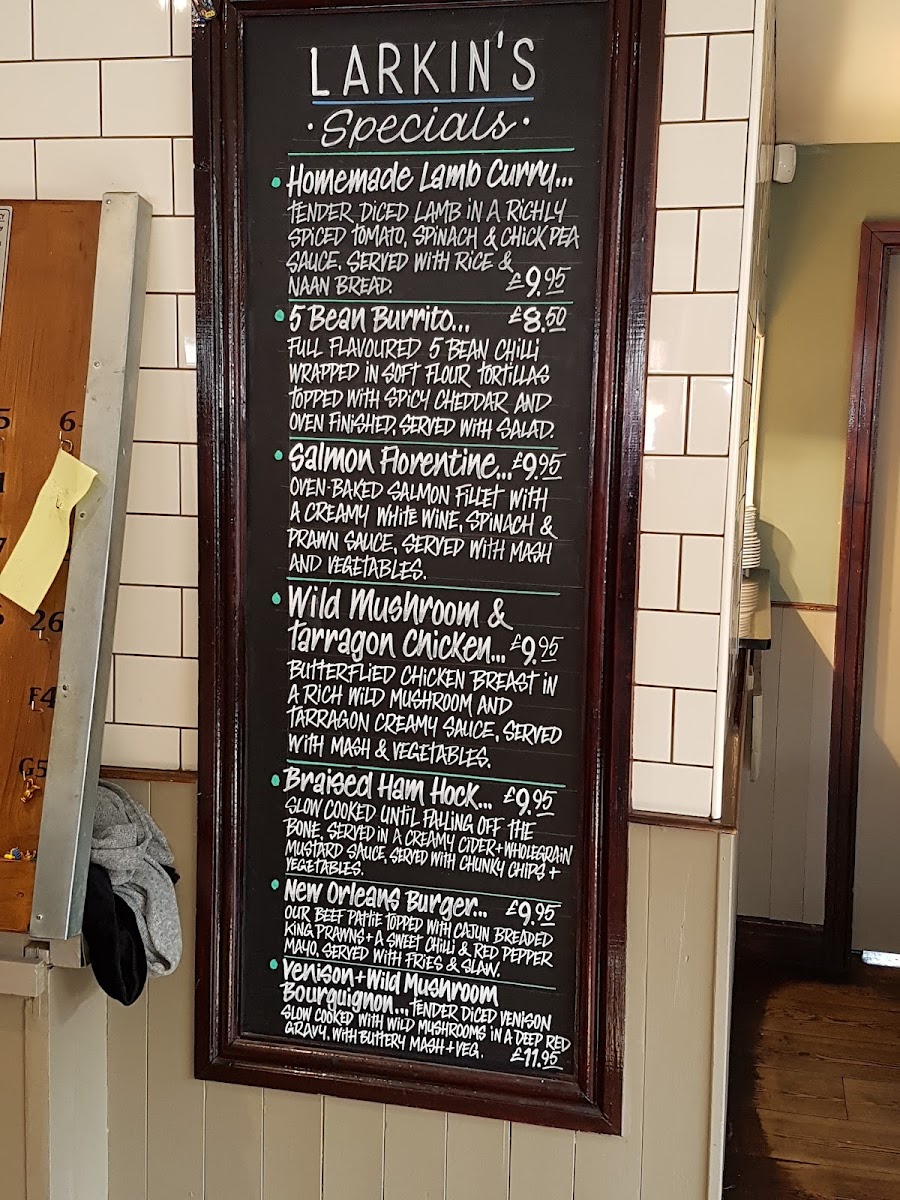 LARKIN'S
·Specials·
Homemade Lamb Curry...
TENDER DICED LAMB IN A RICHLY
SPICED TOMATO, SPINACH & CHICK PEA
SAUCE, SERVED WITH RICE &
NAAN BREAD. £9.95
5 Bean Burrito... £8.50
FULL FLAVOURED 5 BEAN CHILLI
WRAPPED IN SOFT FLOUR TORTILLAS
TOPPED WITH SPICY CHEDDAR AND
OVEN FINISHED, SERVED WITH SALAD.
Salmon Florentine... £9.95
OVEN-BAKED SALMON FILLET WITH
A CREAMY WHITE WINE, SPINACH &
PRAWN SAUCE, SERVED WITH MASH
AND VEGETABLES.
Wild Mushroom &
Tarragon Chicken... £9.95
BUTTERFLIED CHICKEN BREAST IN
A RICH WILD MUSHROOM AND
TARRAGON CREAMY SAUCE, SERVED
WITH MASH & VEGETABLES.
Braised Ham Hock... £9.95
SLOW COOKED UNTIL FALLING OFF THE
BONE, SERVED IN A CREAMY CIDER + WHOLEGRAIN
MUSTARD SAUCE, SERVED WITH CHUNKY CHIPS +
VEGETABLES.
New Orleans Burger... £9.95
OUR BEEF PATTIE TOPPED WITH CAJUN BREADED
KING PRAWNS + A SWEET CHILLI & RED PEPPER
MAYO, SERVED WITH FRIES & SLAW.
Venison + Wild Mushroom
Bourguignon... TENDER DICED VENISON
SLOW COOKED WITH WILD MUSHROOMS IN A DEEP RED
GRAVY, WITH BUTTERY MASH + VEG. £11.95
5 6
26
F4
G5